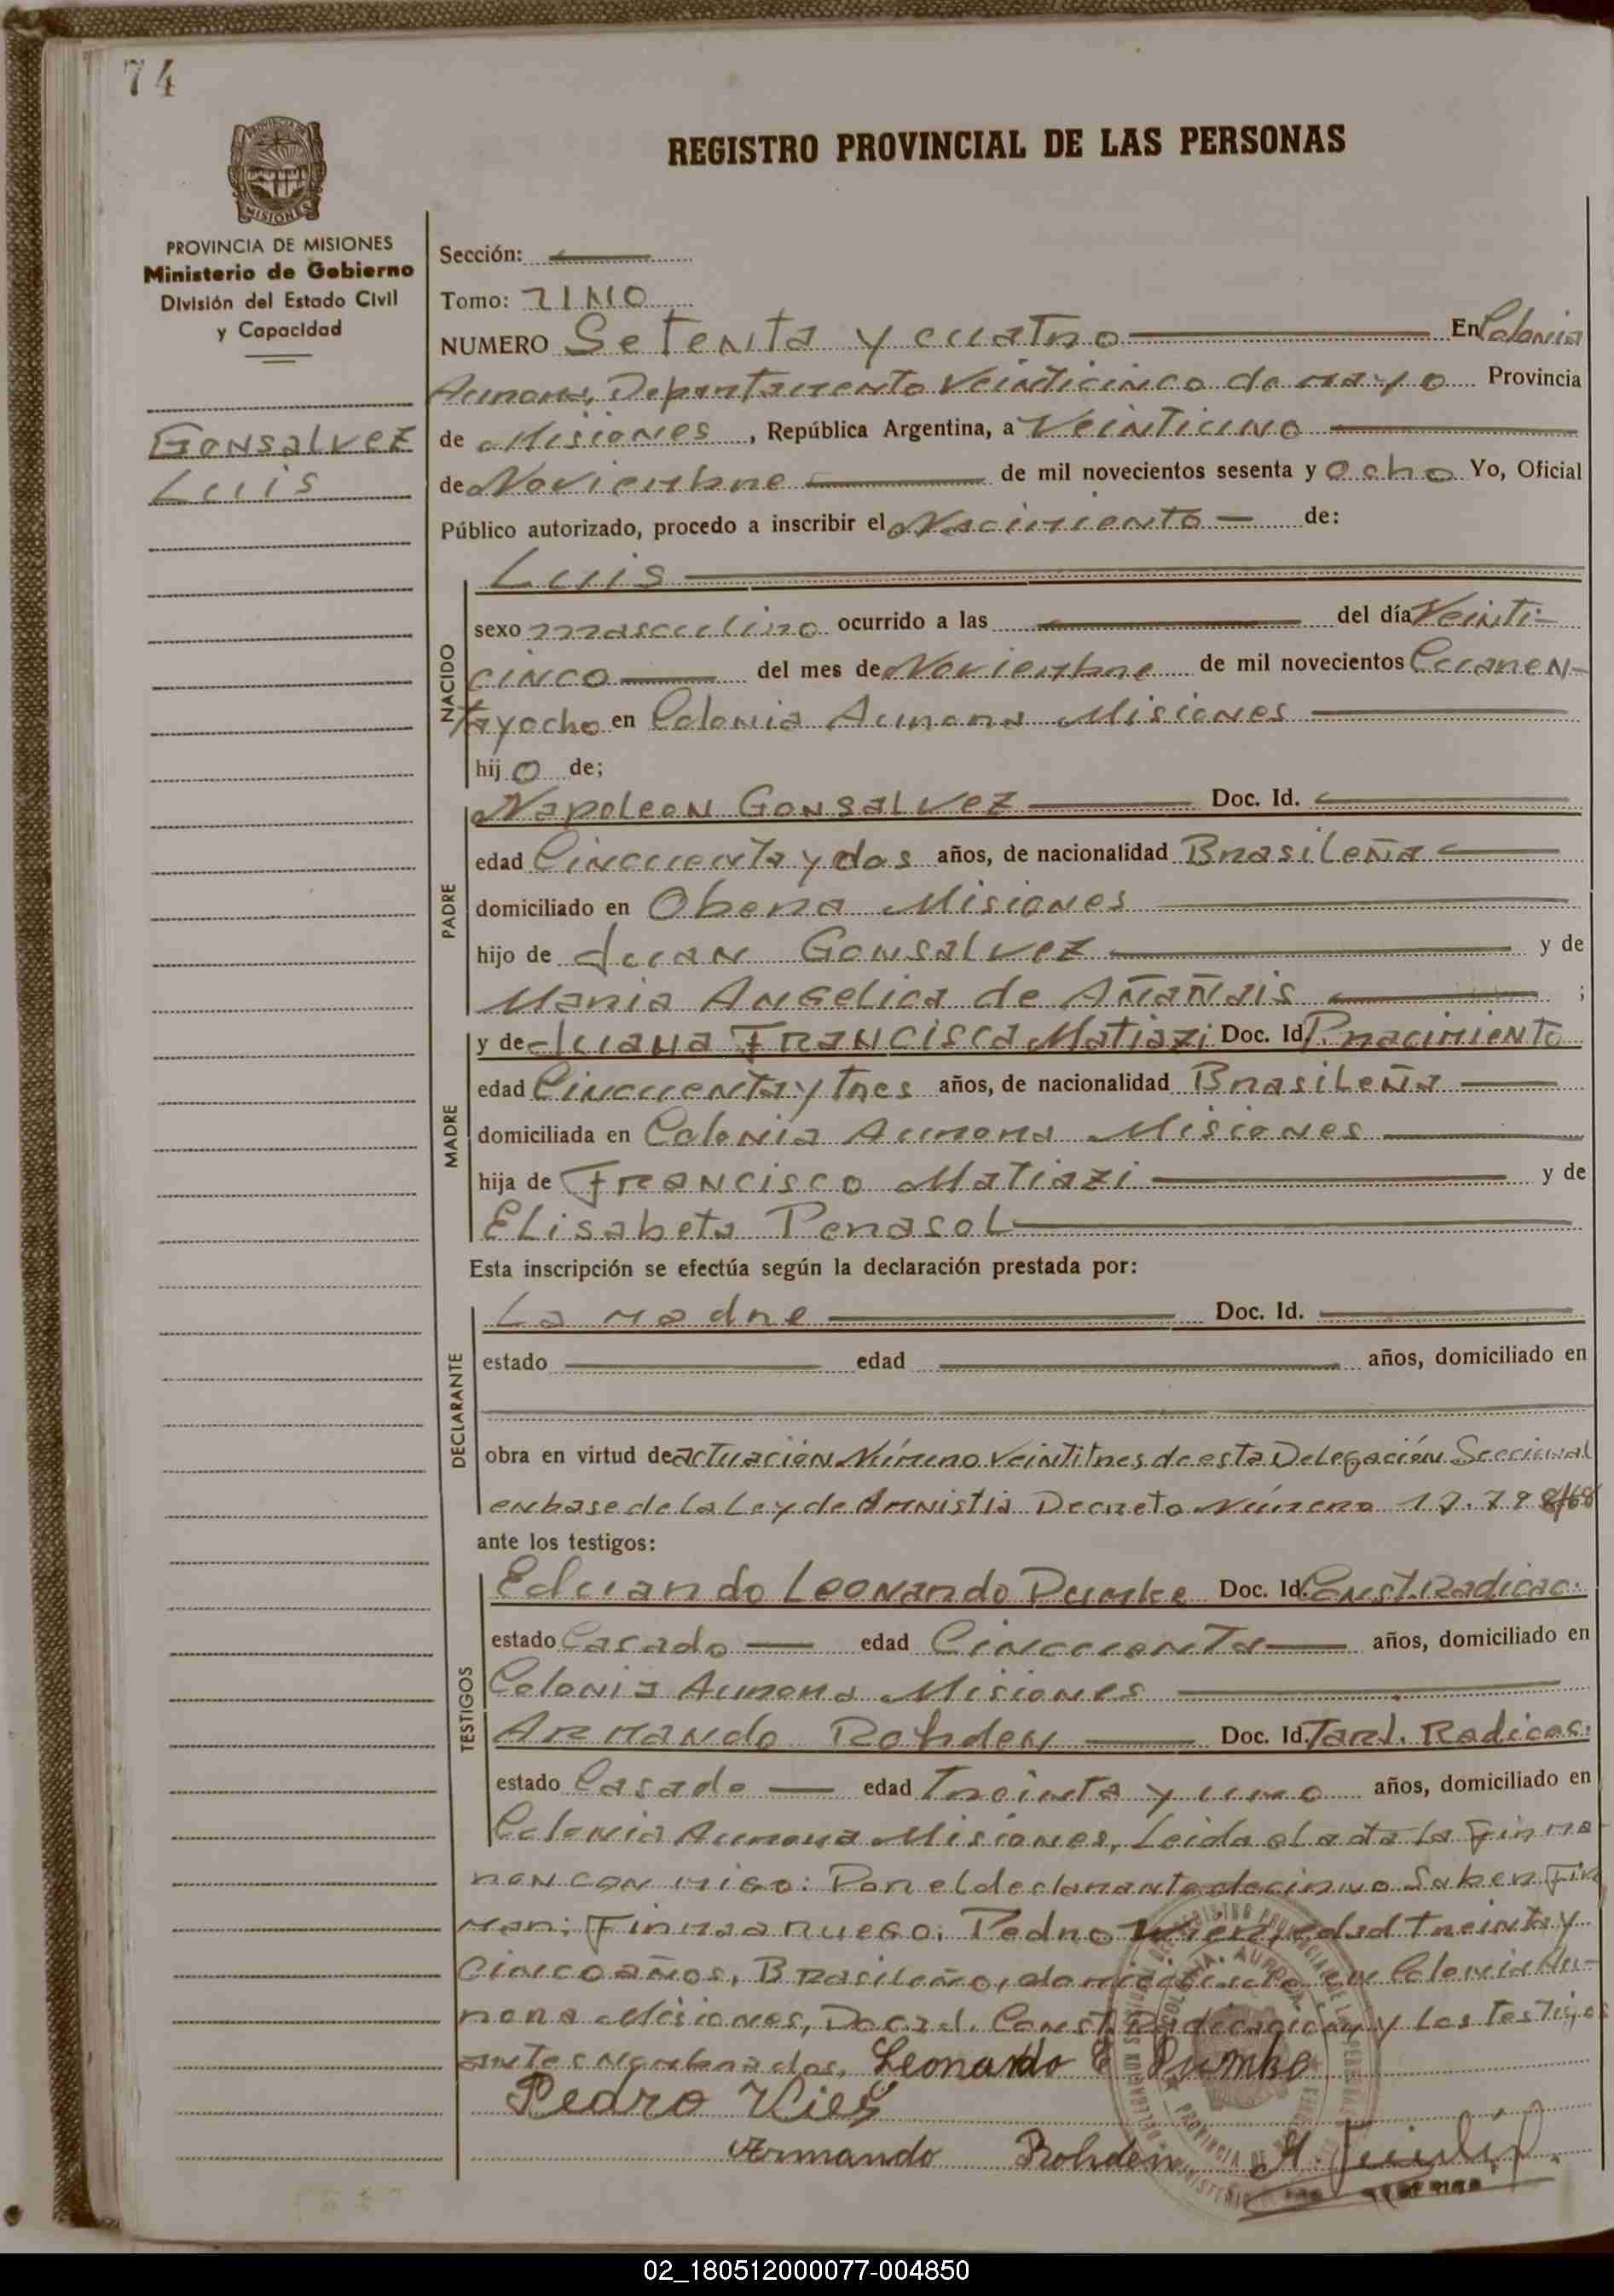 74
REGISTRO PROVINCIAL DE LAS PERSONAS
MISIONES
PROVINCIA DE MISIONES
Ministerio de Gobierno
División del Estado Civil
y Capacidad
Gonsalvez
Luis
Sección:
Tomo: uno
NUMERO Setenta y cuatro En Colonia
Aurora, Departamento Veinticinco de mayo Provincia
de Misiones, República Argentina, a Veinticinco
de Noviembre de mil novecientos sesenta y ocho Yo, Oficial
Público autorizado, procedo a inscribir el Nacimiento de:
NACIDO
Luis
sexo masculino ocurrido a las del día Veinti-
cinco del mes de Noviembre de mil novecientos Cuaren-
tayocho en Colonia Aurora Misiones
hijo de;
PADRE
Napoleon Gonsalvez Doc. Id.
edad Cincuenta y dos años, de nacionalidad Brasileña
domiciliado en Obera Misiones
hijo de Juan Gonsalvez y de
Maria Angelica de Añañais ;
MADRE
y de Juana Francisca Matiazi Doc. Id P. nacimiento
edad Cincuenta y tres años, de nacionalidad Brasileña
domiciliada en Colonia Aurora Misiones
hija de Francisco Matiazi y de
Elisabeta Perasol
Esta inscripción se efectúa según la declaración prestada por:
DECLARANTE
La madre Doc. Id.
estado edad años, domiciliado en
obra en virtud de actuación Número Veintitres de esta Delegación Seccional
en base de la Ley de Amnistia Decreto Número 17.798/68
ante los testigos:
TESTIGOS
Eduardo Leonardo Dumke Doc. Id. Const. Radicac.
estado Casado edad Cincuenta años, domiciliado en
Colonia Aurora Misiones
Armando Rohden Doc. Id. Tard. Radicac.
estado Casado edad Treinta y uno años, domiciliado en
Colonia Aurora Misiones, Leida el acta la Firma-
ron con migo: Por el declarante decir no Saber Fir
mar; Firma a ruego: Pedro edad treinta y
Cinco años, Brasileño, domiciliado en Colonia Au-
rora Misiones, Doc. Id. Const. Radicacion y los testigos
antes nombrados, Leonardo E Dumke
Pedro
Armando Rohden
02_180512000077-004850